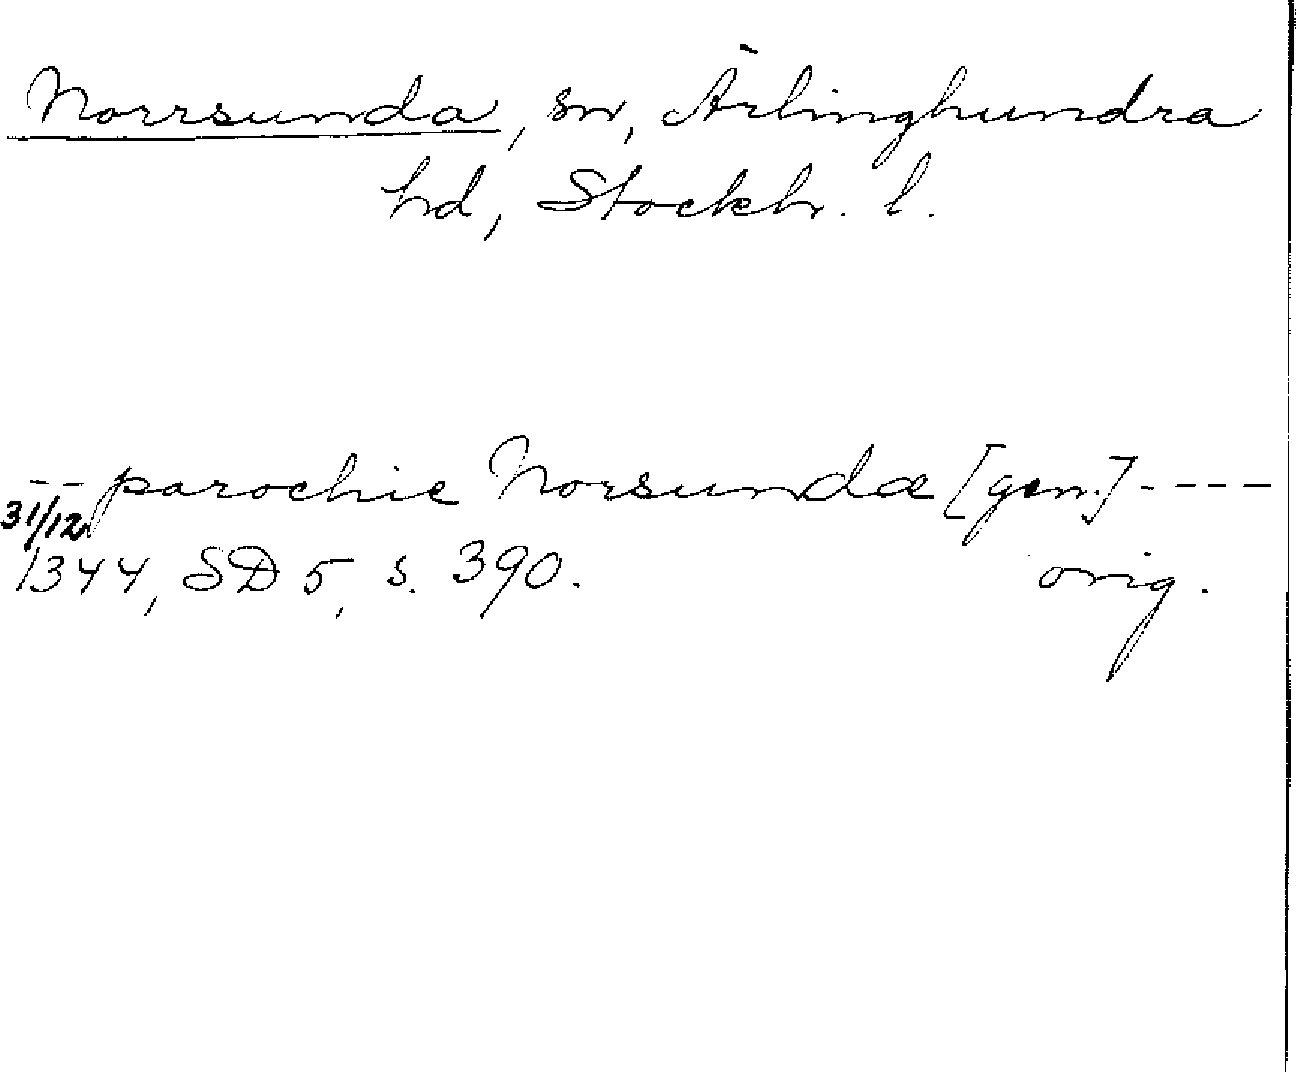 Norrsunda, sn, Ärlinghundra
hd, Stockh. l.
-- parochie Norsundæ [gen.] ----
31/12
1344, SD 5, s. 390. orig.